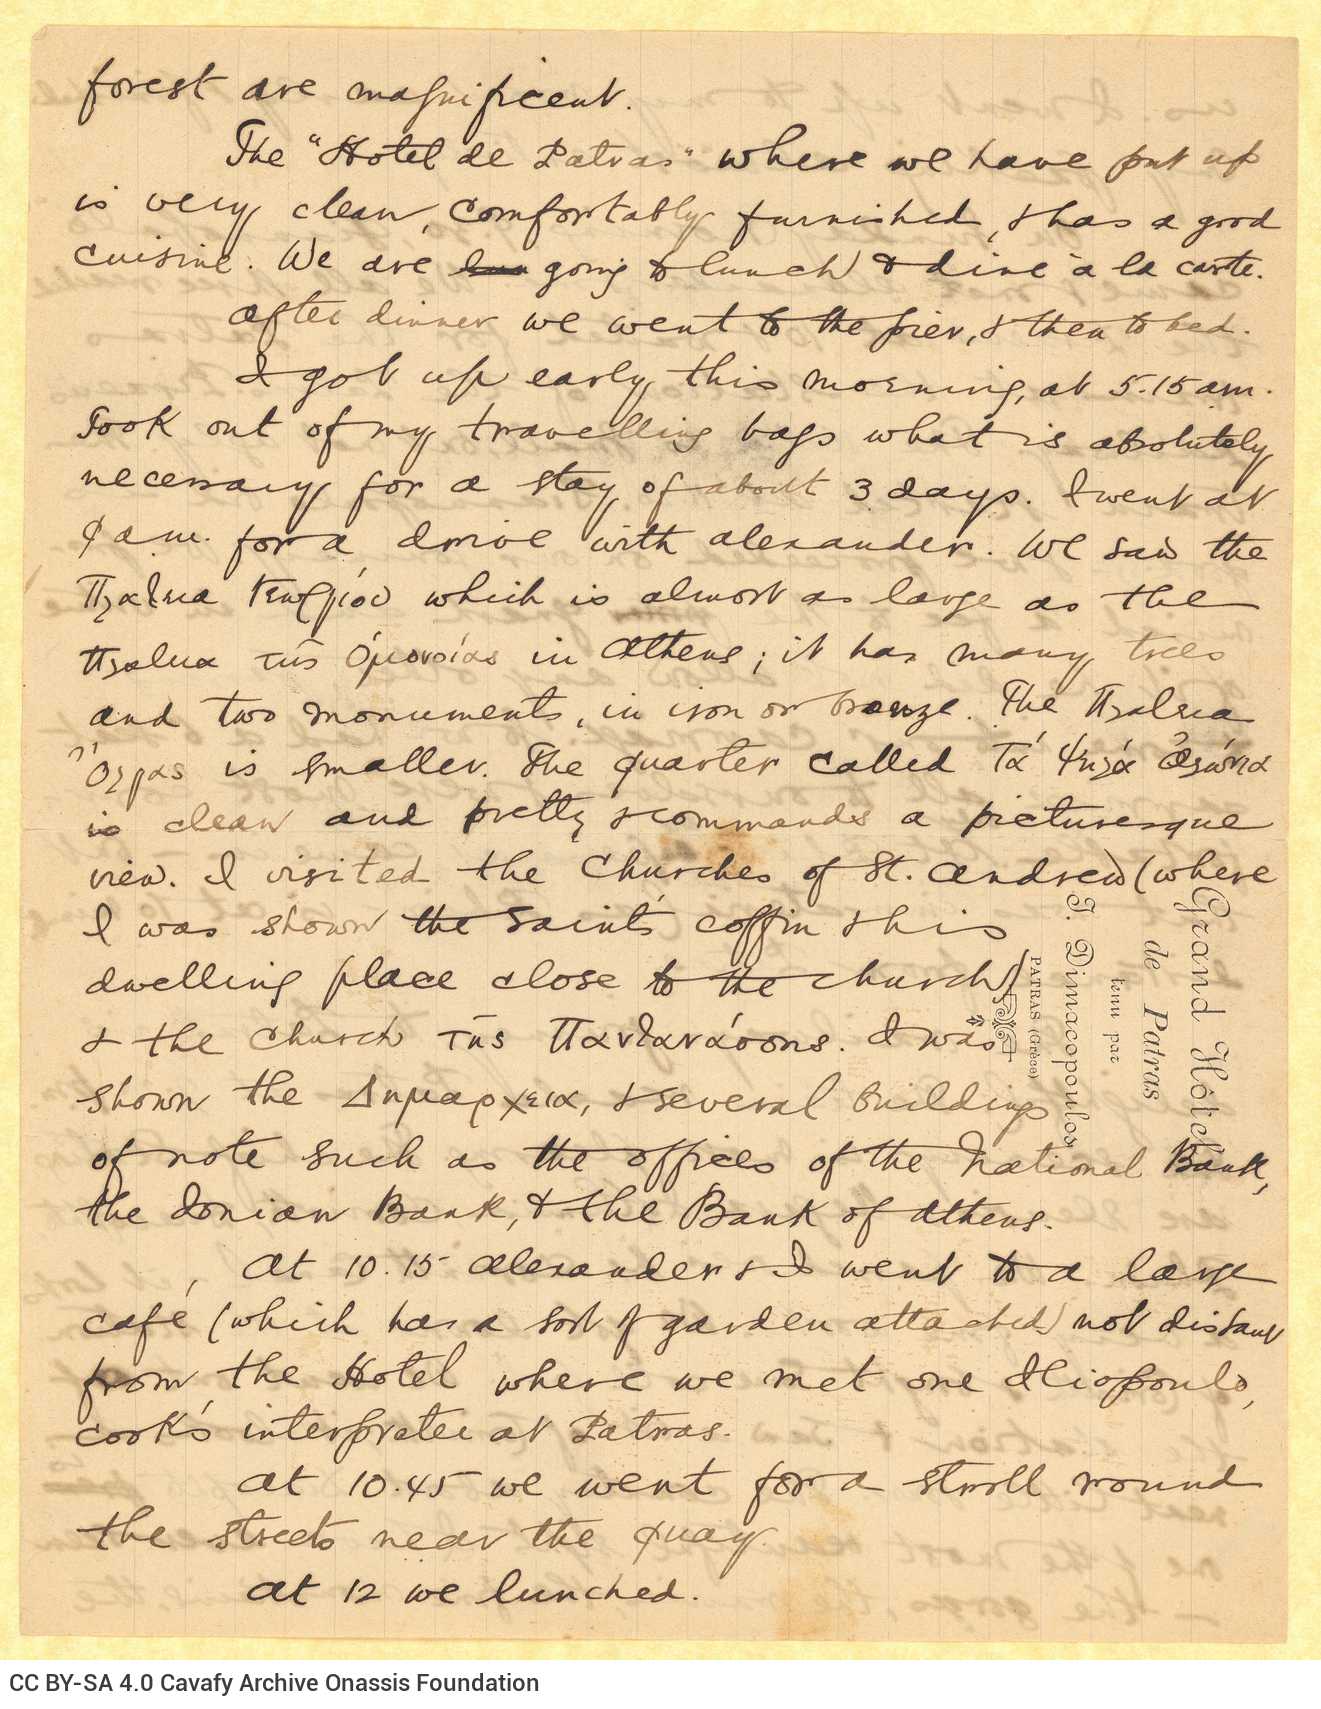 forest are magnificent.
The "Hotel de Patras" where we have put up
is very clean, comfortably furnished, & has a good
cuisine. We are going to lunch & dine à la carte.
After dinner we went to the pier, & then to bed.
I got up early this morning, at 5.15 am.
Took out of my travelling bags what is absolutely
necessary for a stay of about 3 days. I went at
9 a.m. for a drive with Alexander. We saw the
Πλατεια Γεωργίου which is almost as large as the
Πλατεια τῆς Ὁμονοίας in Athens; it has many trees
and two monuments, in iron or bronze. The Πλατεια
Ὄλγας is smaller. The quarter called Τά Ψηλά Ἀλώνια
is clean and pretty & commands a picturesque
view. I visited the Churches of St. Andrew (where
I was shown the Saint's coffin & his
dwelling place close to the church)
& the Church τῆς Παντανάσσης. I was
shown the Δημαρχεια, & several buildings
of note such as the offices of the National Bank,
the Ionian Bank, & the Bank of Athens.
At 10.15 Alexander & I went to a large
café (which has a sort of garden attached) not distant
from the Hotel where we met one Iliopoulo,
Cook's interpreter at Patras.
At 10.45 we went for a stroll round
the streets near the quay.
At 12 we lunched.
Grand Hôtel
de Patras
tenu par
J. Dimacopoulos
PATRAS (Grèce)
CC BY-SA 4.0 Cavafy Archive Onassis Foundation